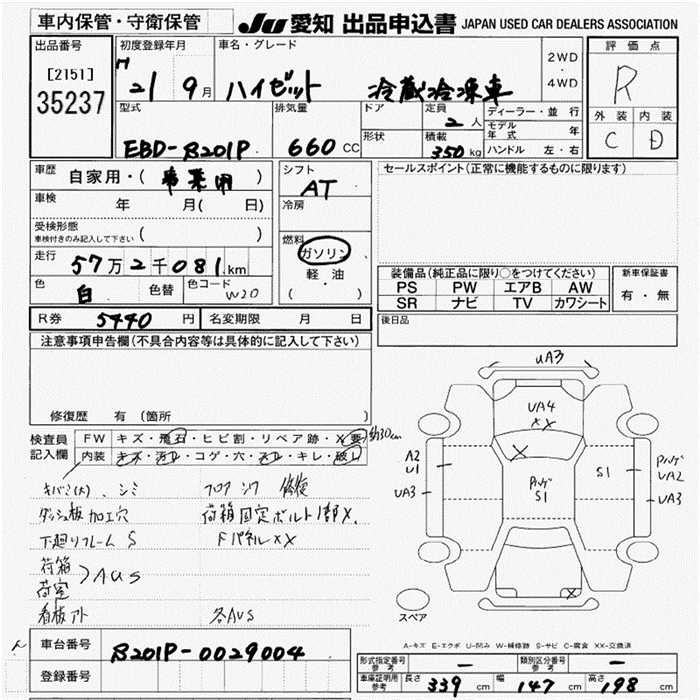 車内保管・守衛保管
JU 愛知 出品申込書 JAPAN USED CAR DEALERS ASSOCIATION
出品番号
[2151]
35237
初度登録年月
H 21 9月
車名・グレード
ハイゼット 冷蔵冷凍車
2WD
・
4WD
評価点
R
外装 内装
C D
型式
EBD-S201P
排気量
660 CC
ドア
形状
定員
2 人
積載
350 kg
ディーラー・並行
モデル年式 年
ハンドル 左・右
車歴
自家用・( 事業用 )
車検
年 月( 日)
受検形態
車検付きのみ記入して下さい ( )
走行
57万2千081km
色
白 色替
色コード
W20
シフト
AT
冷房
燃料
ガソリン
軽・油
( ・ )
セールスポイント(正常に機能するものに限ります)
装備品(純正品に限り○をつけてください)
PS PW エアB AW
SR ナビ TV カワシート
新車保証書
有・無
後日品
R券 5440 円 名変期限 月 日
注意事項申告欄(不具合内容等は具体的に記入して下さい)
修復歴 有 (箇所 )
検査員
記入欄
FW キズ・飛石・ヒビ割・リペア跡・X要 約30cm
内装 キズ・汚れ・コゲ・穴・スレ・キレ・破レ
キバミ(大)、シミ フロア シワ 修復
ダッシュ板 加工穴 荷箱固定ボルト1部X.
下廻りフレーム S FパネルXX
荷箱
荷室
>AUS
看板アト 各AUS
uA3
UA4
XX
X
A2
U1
UA3
Pハゲ
S1
S1
Pハゲ
UA2
UA3
X
スペア
A-キズ E-エクボ U-凹み W-補修跡 S-サビ C-腐食 XX-交換済
車台番号 S201P-0029004
登録番号
形式指定番号
参考
-
類別区分番号
参考
-
車庫証明用
参考
長さ 339 cm 幅 147 cm 高さ 198 cm